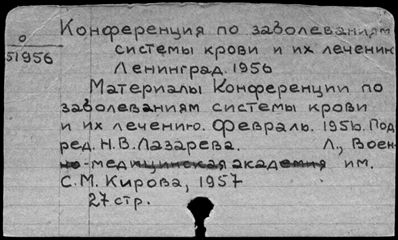 Конференция по заболеваниям
о
системы крови и их лечению
51956
Ленинград. 1956
Материалы Конференции по
заболеваниям системы крови
и их лечению. Февраль. 1956. Под
ред. Н.В.Лазарева. Л., Воен-
но-медицинская академия им.
С.М. Кирова, 1957
27 стр.